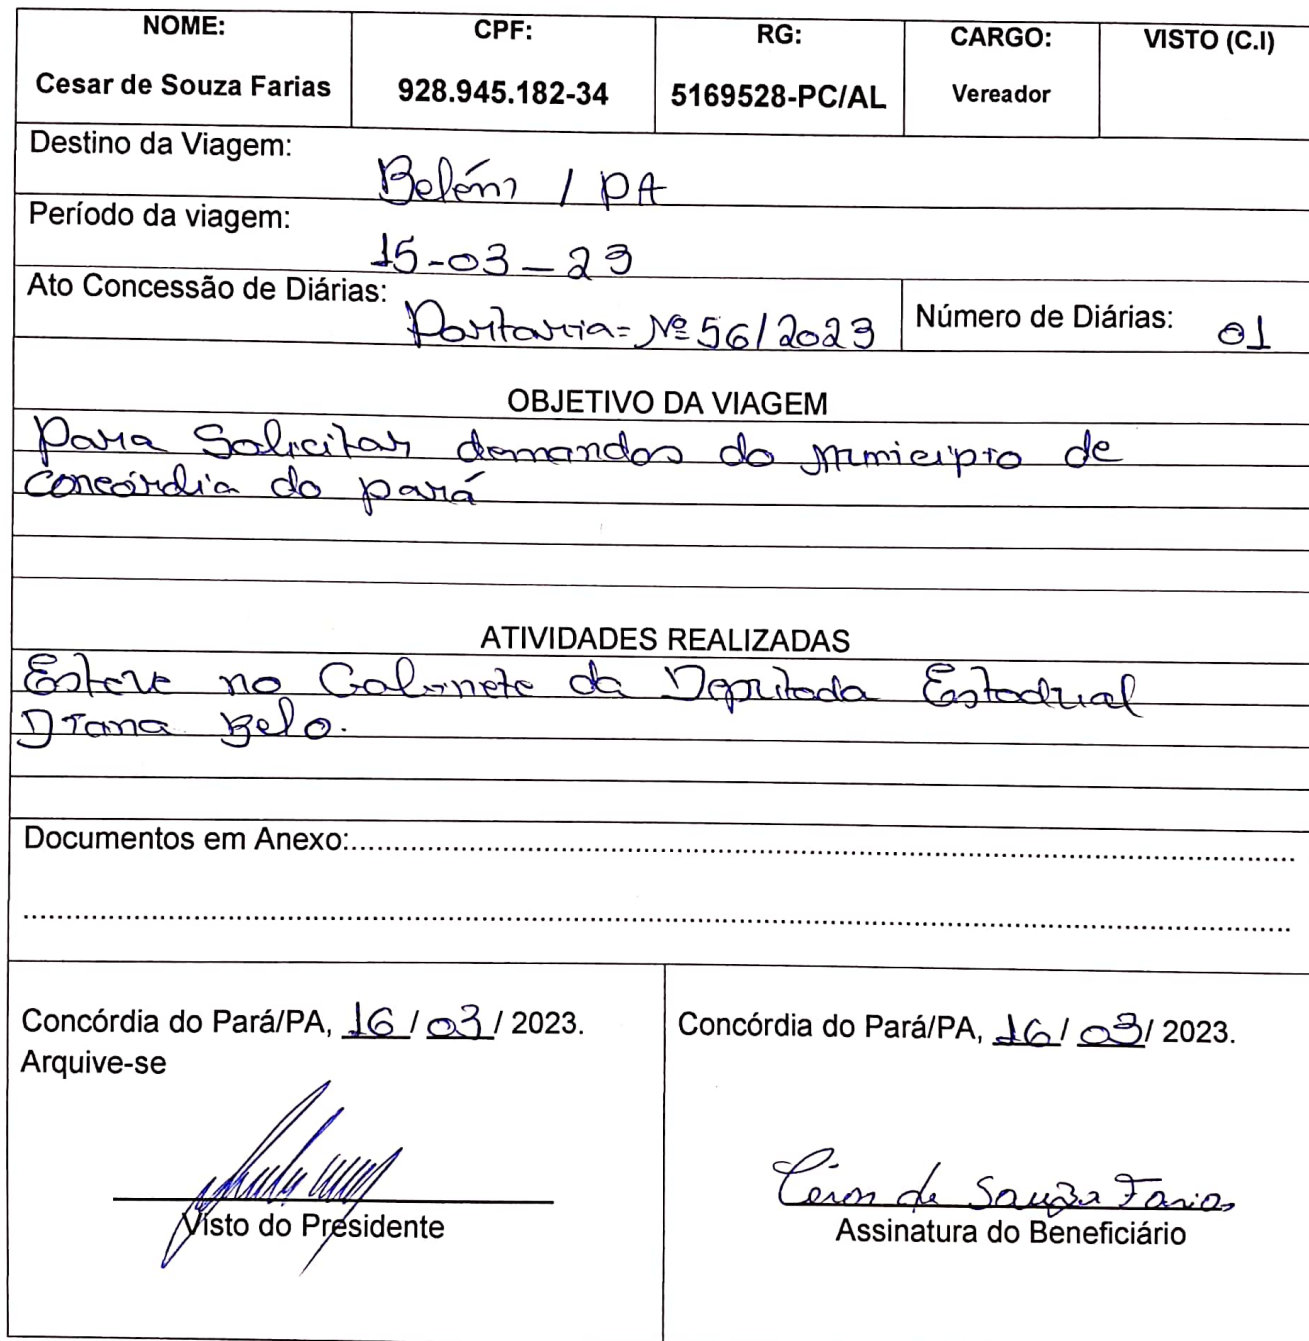 NOME: CPF: RG: CARGO: VISTO (C.I)
Cesar de Souza Farias 928.945.182-34 5169528-PC/AL Vereador
Destino da Viagem:
Belém / PA
Período da viagem:
15-03-23
Ato Concessão de Diárias: Portaria=Nº 56/2023 Número de Diárias: 01
OBJETIVO DA VIAGEM
Para Solicitar demandas do município de
concórdia do pará
ATIVIDADES REALIZADAS
Esteve no Gabinete da Deputada Estadual
Diana Belo.
Documentos em Anexo:
Concórdia do Pará/PA, 16 / 03 / 2023.
Arquive-se
Visto do Presidente
Concórdia do Pará/PA, 16 / 03 / 2023.
Cesar de Souza Farias
Assinatura do Beneficiário